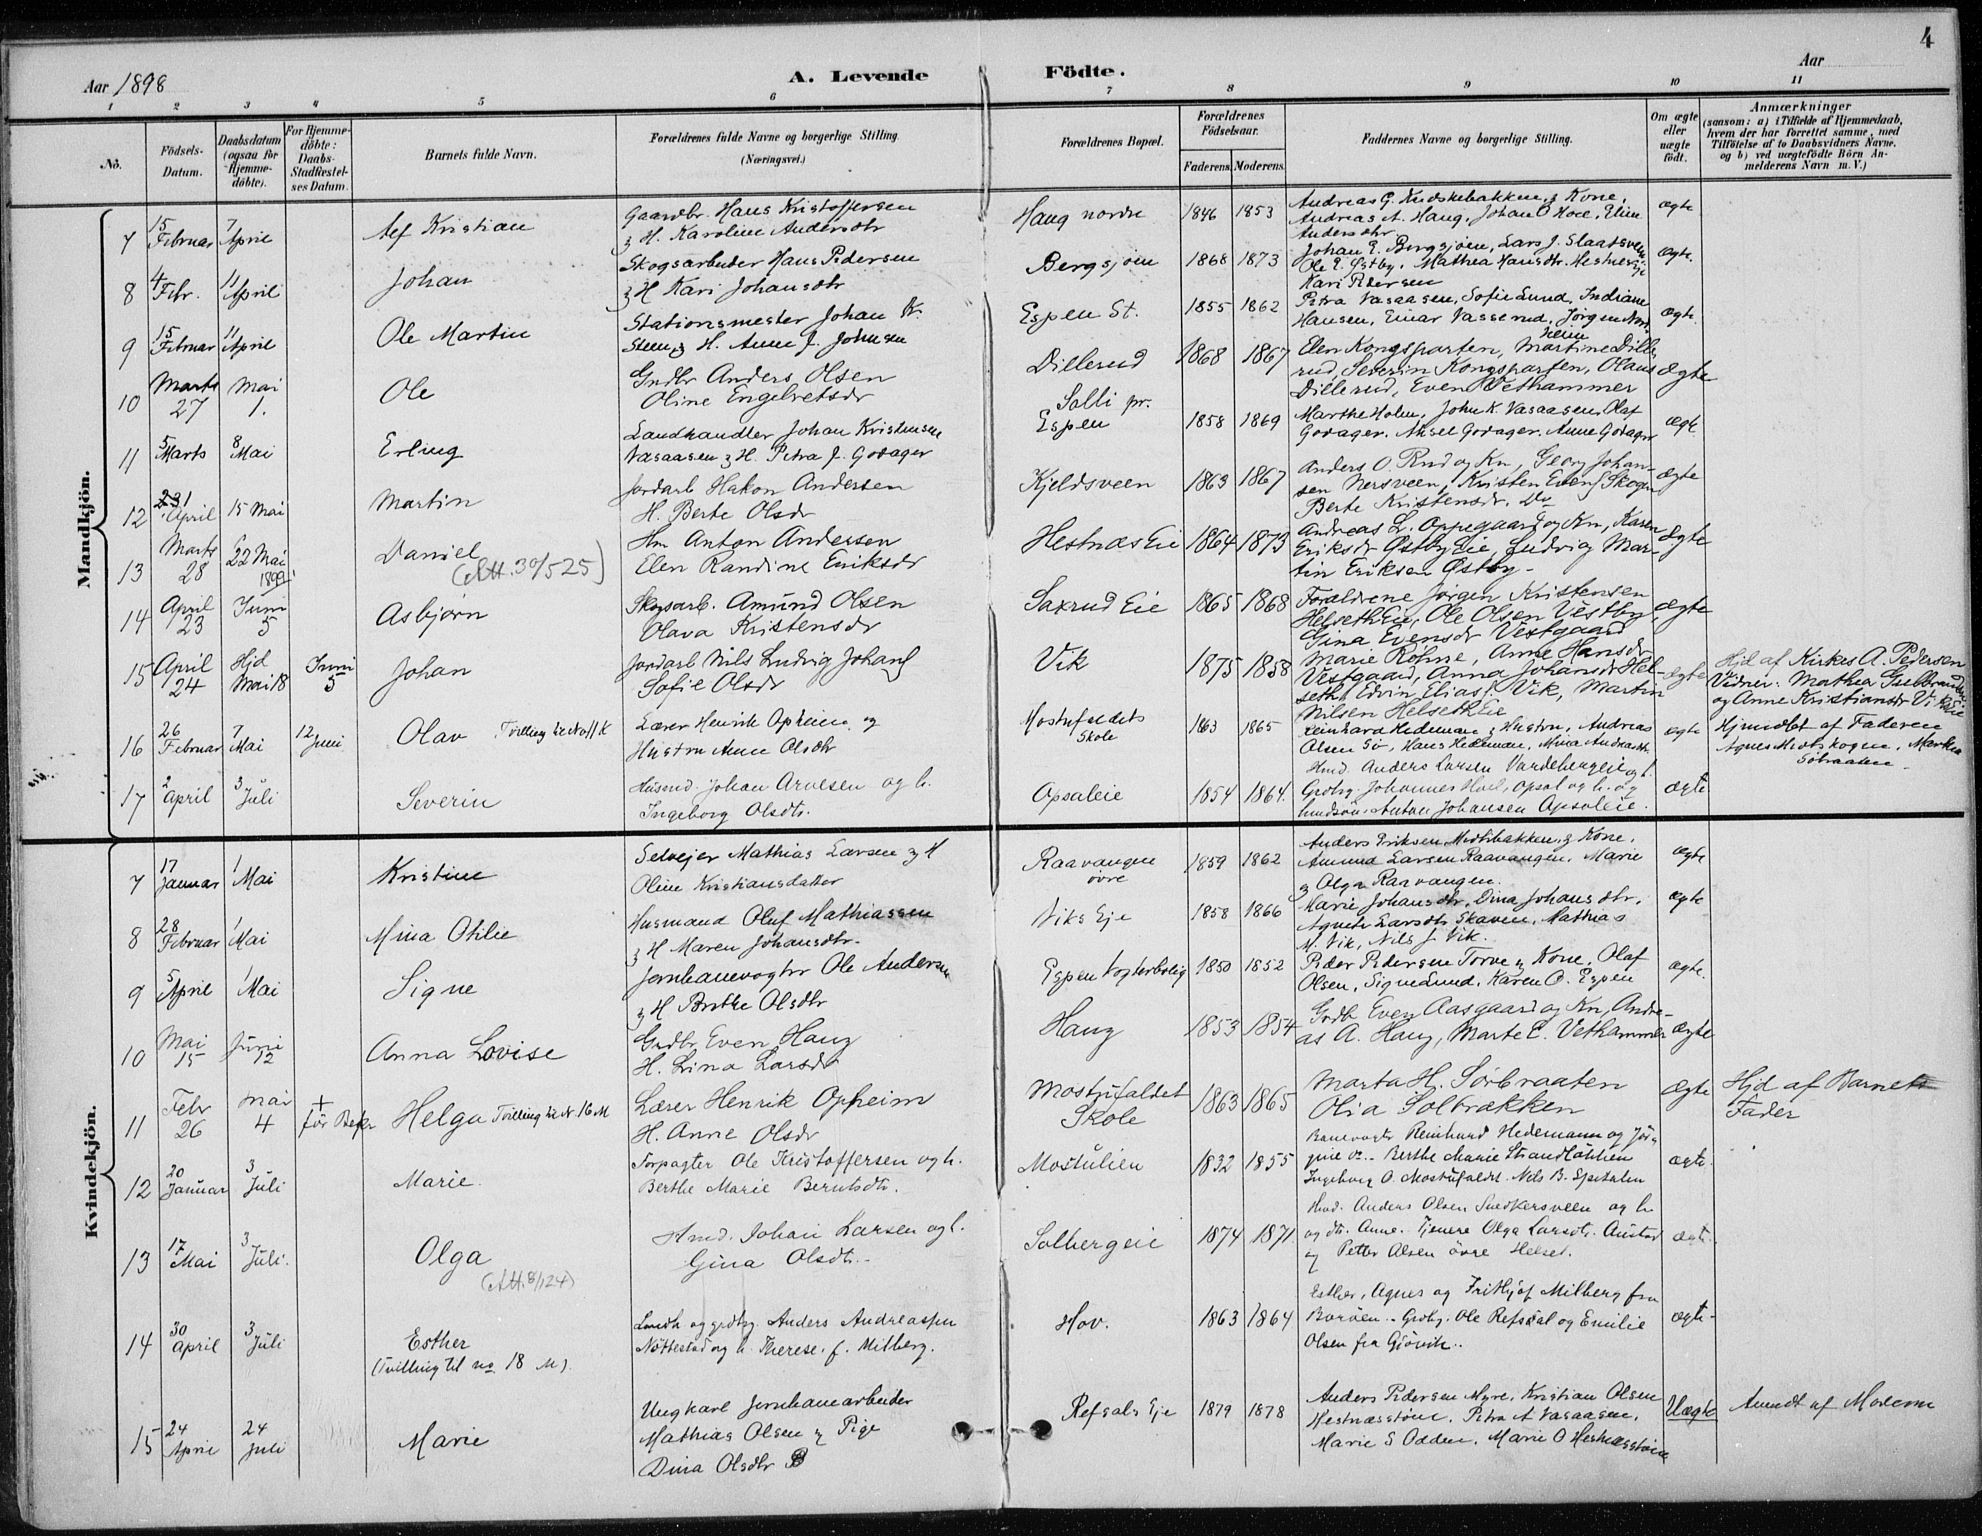 4
Aar 1898
A. Levende Födte.
Aar
1 2 3 4 5 6 7 8 9 10 11
No.
Födsels-Datum.
Daabsdatum (ogsaa for Hjemme-döbte).
For Hjemme-döbte: Daabs-Stadfæstel-ses Datum.
Barnets fulde Navn.
Forældrenes fulde Navne og borgerlige Stilling.
(Næringsvei.)
Forældrenes Bopæl.
Forældrenes Födselsaar.
Faderens. Moderens.
Faddernes Navne og borgerlige Stilling.
Om ægte eller uægte födt.
Anmærkninger
(saasom: a) i Tilfælde af Hjemmedaab, hvem der har forrettet samme, med Tilföielse af to Daabsvidners Navne, og b) ved uægtefödte Börn An-melderens Navn m. V.)
Mandkjön.
7 15 Februar 7 April Alf Kristian
Gaardbr. Hans Kristoffersen
& H. Karoline Andersdtr
Haug nordre 1846 1853
Andreas G. Kudskebakken & Kone,
Andreas A. Haug, Johan O Hoel, Elin
Andersdtr.
ægte
8 4 Febr. 11 April Johan
Skogsarbeider Hans Pedersen
& H Kari Johansdtr
Bergsjøen 1868 1873
Johan E. Bergsjøen, Lars J. Slaatsveen
Ole E. Østby. Mathea Hansdtr. Hestnæs Eje
Kari Pedersen
ægte.
9 15 Februar 11 April Ole Martin
Stationsmester Johan Kr.
Steen, & H. Anne J. Johnsen
Espen St. 1855 1862
Petra Vasaasen, Sofie Lund, Indiane
Hansen, Einar Vasserud, Jørgen
ægte.
10 Marts 27 Mai 1. Ole
Grdbr Anders Olsen
Oline Engebretsdr
Dillerud 1868 1867
Elen Kongsparten, Martine Dille
rud, Severin Kongsparten, Olaus
Dillerud, Even Vethammer
Ægte
11 5 Marts 8 Mai Erling
Landhandler Johan Kristensen
Vasaasen & H. Petra J. Godager
Solli pr. Espen 1858 1869
Marthe Holm, John K. Vasaasen, Olaf
Godager. Aksel Godager. Anne Godager
ægte
12 April 15 Mai Martin
Jordarb Hakon Andersen
H. Berte Olsdr
Kjeldsveen 1863 1867
Anders O. Rud og Kn, Georg Johan-
sen Nersveen, Kristen Evens Skogen
Berte Kristensdr. Do
ægte
13 Marts 28 22 Mai Daniel
(Att. 30/5 25)
Hm Anton Andersen
Elen Randine Eriksdr
Hestnæs Eie 1864 1873
Andreas L. Oppegaard og Kn, Karen
Eriksdr Østby Eie, Ludvig Mar-
tin Eriksen Østby-
Ægte
14 April 23 Juni 5 Asbjørn
Skogsarb. Amund Olsen
Olava Kristensdr
Saxrud Eie 1865 1868
Forældrene Jørgen Kristensen
Helseth Eie, Ole Olsen Vestby,
Gina Evensdr Vestgaard
ægte
15 April 24 Hjd Mai 18 Juni 5 Johan
Jordarb Nils Ludvig Johans
Sofie Olsdr
Vik 1875 1858
Marie Røhne, Anne Hansdr
Vestgaard, Anna Johansdr Hel-
seth, Edvin Elias s. Vik, Martin
Nilsen Helseth Eie
ægte
Hjd af Kirkes A. Pedersen
Vidner: Mathea
og Anne Kristiansdr Vik Eie
16 26 Februar 7 Mai 12 Juni Olav Tvilling til No 11 K
Lærer Henrik Opheim og
Hustru Anne Olsdtr
Mostufaldets Skole 1863 1865
Reinhard Hedeman & Hustru, Andreas
Olsen Sø, Hans Hedeman, Mina Andreasdtr.
ægte
Hjemdbt af Faderen
Agnes Midtskogen, Martha
Sobraaten
17 2 April 3 Juli Severin
Husmd. Johan Arvesen og h.
Ingeborg Olsdtr.
Opsaleie 1854 1864.
Hmd. Anders Larsen Vardebergeie og h.
Grdbr. Johannes Hoel, Opsal og h. og
Anton Johansen Opsaleie.
ægte
Kvindekjön.
7 17 Januar 1 Mai Kristine
Selvejer Mathias Larsen & H
Oline Kristiansdatter
Raavangen øvre 1859 1862
Anders Eriksen Midtibakken & Kone,
Amund Larsen Raavangen. Marie
& Olga Raavangen.
ægte
8 28 Februar 1 Mai Mina Otilie
Husmand Oluf Mathiassen
& H Maren Johansdtr.
Viks Eje 1858 1866
Marie Johansdtr, Dina Johansdtr.
Agnete Larsdtr Skaven, Mathias
M. Vik, Nils J Vik.
ægte
9 5 April 1 Mai Signe
Jernbanevogter Ole Andersen
& H Berthe Olsdtr
Espen Vogterbolig 1850 1852
Peder Pedersen Torve & Kone. Olaf
Olsen, Signe Lund, Karen O. Espen
ægte.
10 Mai 15 Juni 12 Anna Lovise
Grdbr Even Haug
H. Lina Larsdr
Haug 1853 1854
Grdb Even Aasgaard og Kn, Andre-
as A. Haug, Marte E. Vethammer
Ægte
11 Febr 26 Mai 4 + før Bekr Helga Tvilling til Nr. 16 M
Lærer Henrik Opheim
H. Anne Olsdr
Mostufaldet Skole 1863 1865
Marta H. Sørbraaten
Olia Solbrækken
Ægte
Hjd af Barnets
Fader
12 20 Januar 3 Juli Marie.
Torpagter Ole Kristoffersen og h.
Berthe Marie Berntsdtr.
Mostulien 1832 1855
Banevogter Reinhard Hedemann og Jør-
gine do - Berthe Marie Strandløkken
Ingeborg O. Mostufaldet. Nils B. Spitalen
ægte.
13 17 Mai 3 Juli. Olga
(Att. 8/1 24)
Hmd. Johan Larsen og h.
Gina Olsdtr.
Solbergeie 1874 1871
Hmd. Anders Olsen Snedkersveen og h
og dtr. Anne. Tjenere Olga Larsdtr. Austad
og Petter Olsen øvre Helset.
ægte.
14 30 April 3 Juli Esther
(Tvilling til no 18 M).
Landh og grdbg. Anders Andreassen
Nøttestad og h. Therese, f. Milberg.
Hov. 1863 1864
Esther, Agnes og Frithjof Milberg fra
Grdbg. Ole Refsal og Emilie
Olsen fra Gjøvik.
ægte-
15 24 April 24 Juli Marie
Ungkarl Jernbanearbeider
Mathias Olsen & Pige
Dina Olsdtr
Refsals Eje 1879 1878
Anders Pedersen Myre, Kristian Olsen
Hestnæsstøen, Petra A Vasaasen.
Marie S Odden, Marie O Hestnæsstøen
Uægte
Anmdt af Moderen